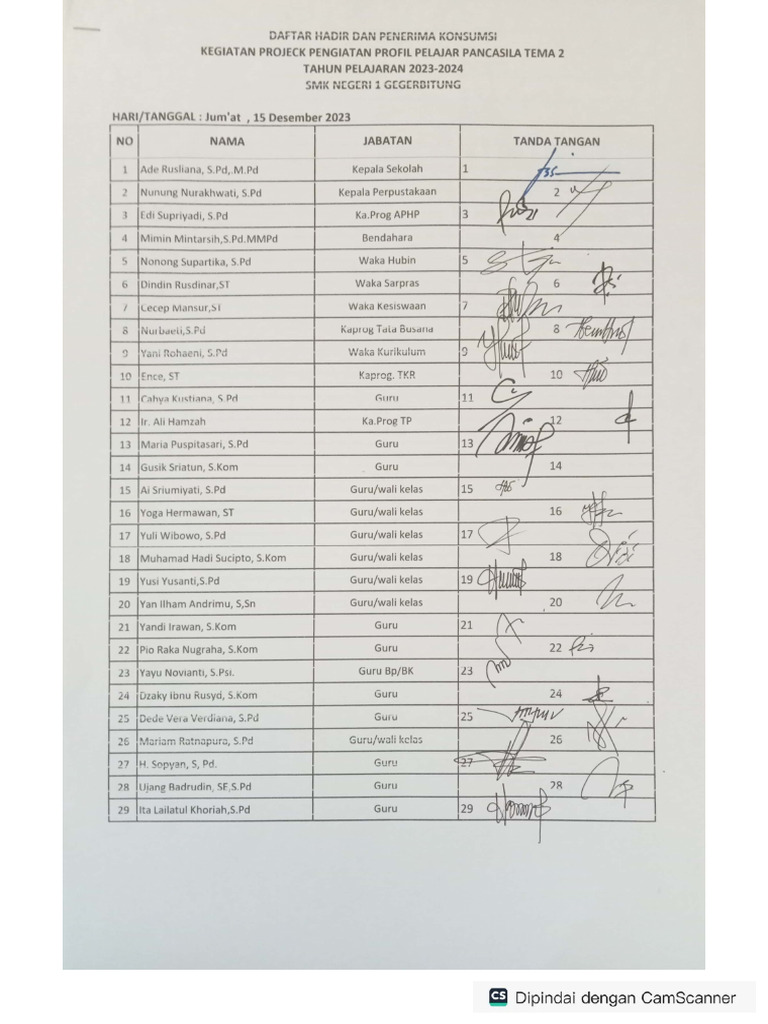 DAFTAR HADIR DAN PENERIMA KONSUMSI
KEGIATAN PROJECK PENGIATAN PROFIL PELAJAR PANCASILA TEMA 2
TAHUN PELAJARAN 2023-2024
SMK NEGERI 1 GEGERBITUNG
HARI/TANGGAL : Jum'at , 15 Desember 2023
NO NAMA JABATAN TANDA TANGAN
1 Ade Rusliana, S.Pd,.M.Pd Kepala Sekolah 1
2 Nunung Nurakhwati, S.Pd Kepala Perpustakaan 2
3 Edi Supriyadi, S.Pd Ka.Prog APHP 3
4 Mimin Mintarsih,S.Pd.MMPd Bendahara 4
5 Nonong Supartika, S.Pd Waka Hubin 5
6 Dindin Rusdinar,ST Waka Sarpras 6
7 Cecep Mansur,ST Waka Kesiswaan 7
8 Nurbaeti,S.Pd Kaprog Tata Busana 8
9 Yani Rohaeni, S.Pd Waka Kurikulum 9
10 Ence, ST Kaprog. TKR 10
11 Cahya Kustiana, S.Pd Guru 11
12 Ir. Ali Hamzah Ka.Prog TP 12
13 Maria Puspitasari, S.Pd Guru 13
14 Gusik Sriatun, S.Kom Guru 14
15 Ai Sriumiyati, S.Pd Guru/wali kelas 15
16 Yoga Hermawan, ST Guru/wali kelas 16
17 Yuli Wibowo, S.Pd Guru/wali kelas 17
18 Muhamad Hadi Sucipto, S.Kom Guru/wali kelas 18
19 Yusi Yusanti,S.Pd Guru/wali kelas 19
20 Yan Ilham Andrimu, S,Sn Guru/wali kelas 20
21 Yandi Irawan, S.Kom Guru 21
22 Pio Raka Nugraha, S.Kom Guru 22
23 Yayu Novianti, S.Psi. Guru Bp/BK 23
24 Dzaky Ibnu Rusyd, S.Kom Guru 24
25 Dede Vera Verdiana, S.Pd Guru 25
26 Mariam Ratnapura, S.Pd Guru/wali kelas 26
27 H. Sopyan, S, Pd. Guru 27
28 Ujang Badrudin, SE,S.Pd Guru 28
29 Ita Lailatul Khoriah,S.Pd Guru 29
CS Dipindai dengan CamScanner